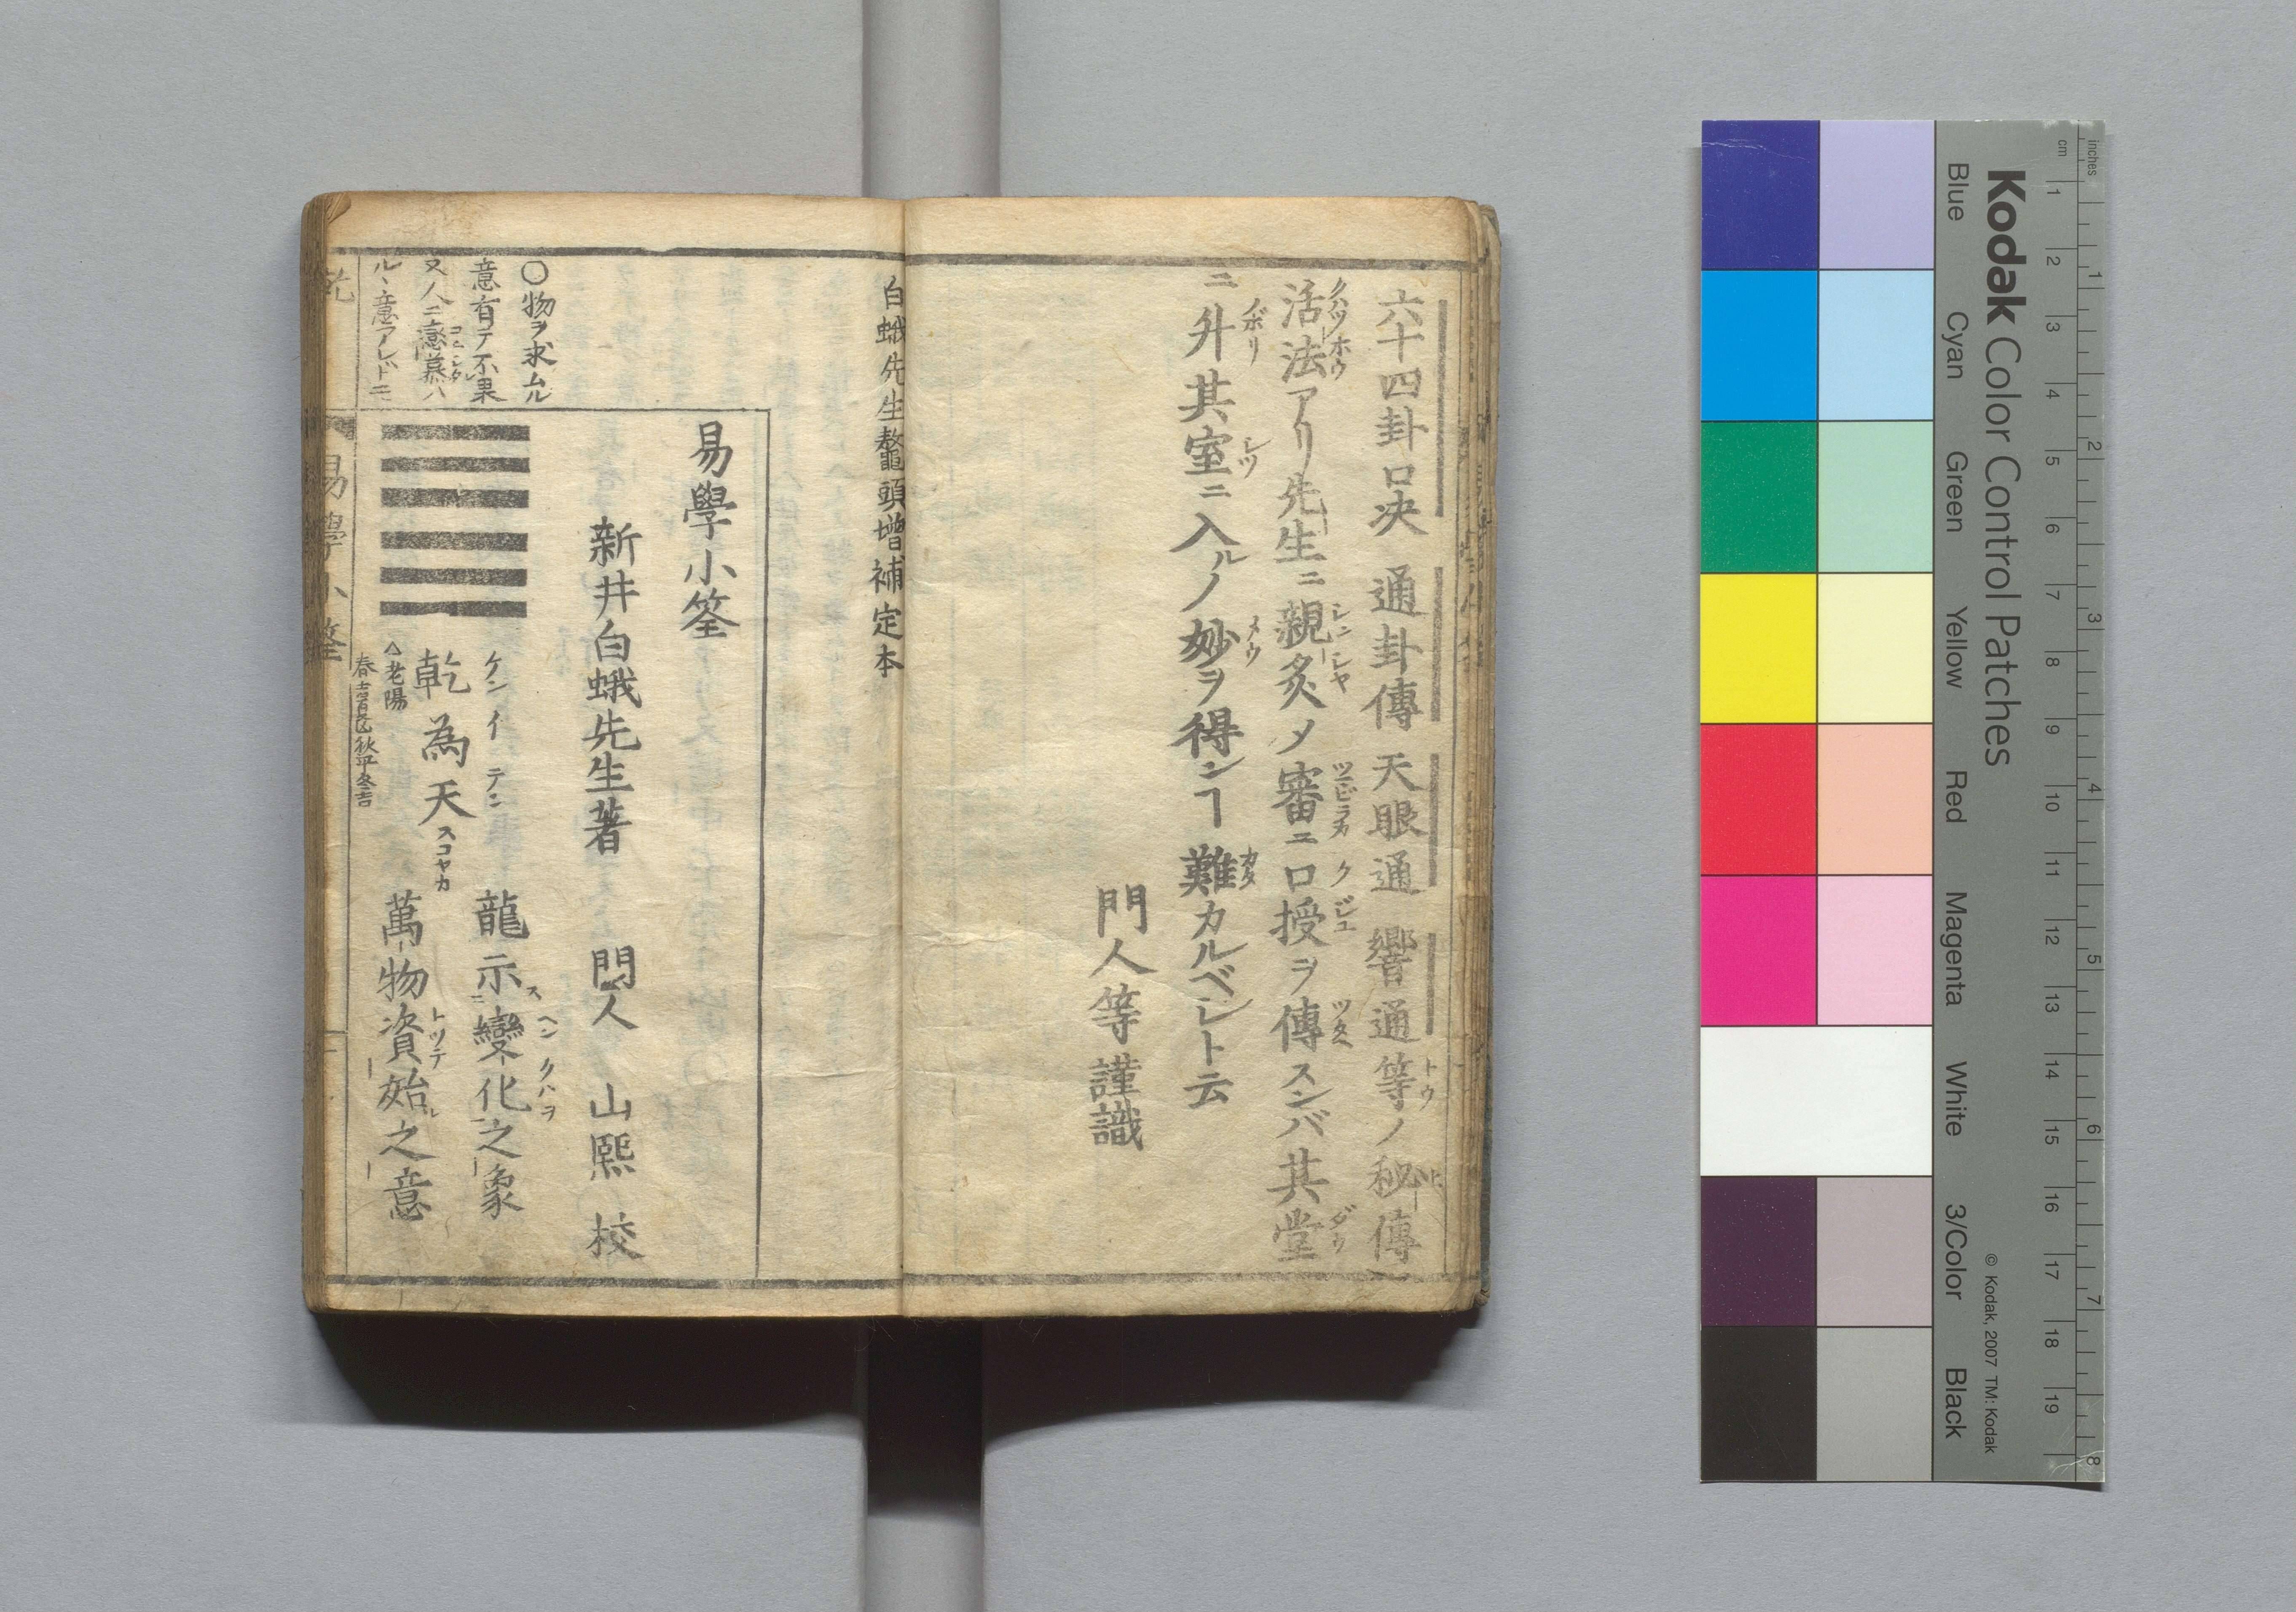 六十四卦口决 通卦傳 天眼通 響通等ノ秘傳
活法アリ先生ニ親炙メ審ニ口授ヲ傳スンバ其堂
ニ升其室ニ入ルノ妙ヲ得ンヿ難カルベシト云
門人等謹識
白蛾先生鼇頭增補定本
易學小筌
新井白蛾先生著 門人 山熙 校
○物ヲ求ムル
意有テ不果
又人ニ懸慕ハ
ルヽ意アレドモ
乾為天
ケンイテン
スコヤカ
△老陽
龍示變化之象
萬物資始之意
易學小筌
Kodak Color Control Patches
Blue Cyan Green Yellow Red Magenta White 3/Color Black
© Kodak, 2007 TM: Kodak
cm 1 2 3 4 5 6 7 8 9 10 11 12 13 14 15 16 17 18 19
inches 1 2 3 4 5 6 7 8